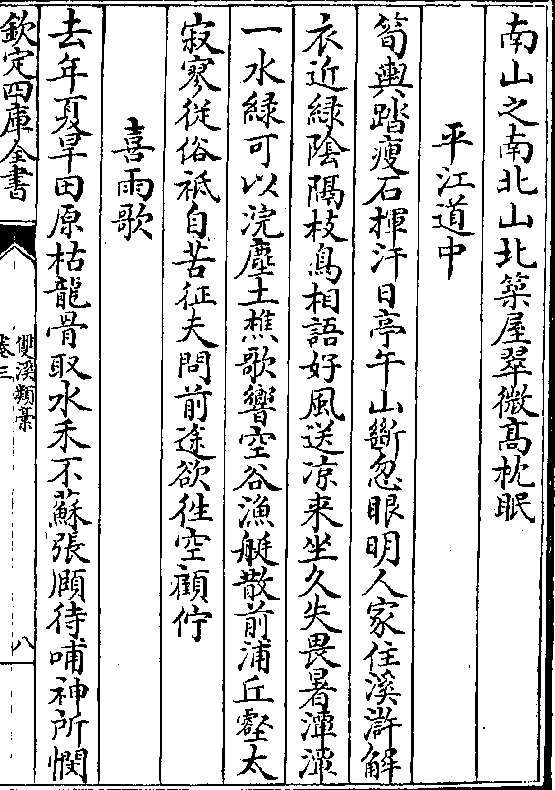 南山之南北山北築屋翠微高枕眠
平江道中
筍輿踏瘦石揮汗日亭午山斷忽眼明人家住溪滸解
衣近綠陰隔枝鳥相語好風送凉来坐久失畏暑潭潭
一水綠可以浣塵土樵歌響空谷漁艇散前浦丘壑太
寂寥從俗祗自苦征夫問前途欲徃空顧佇
喜雨歌
去年夏旱田原枯龍骨取水禾不蘇張頤待哺神所憫
欽定四庫全書
雙溪類藁
卷三
八